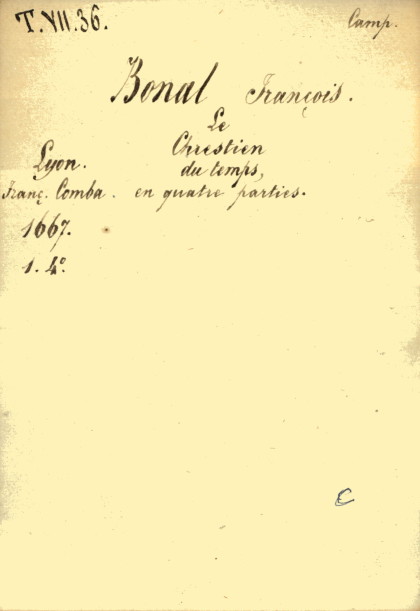 T.VII.36. Camp.
Bonal François.
Le
Chrestien
Lyon. du temps,
Franç. Comba. en quatre parties.
1667.
1. 4°.
C